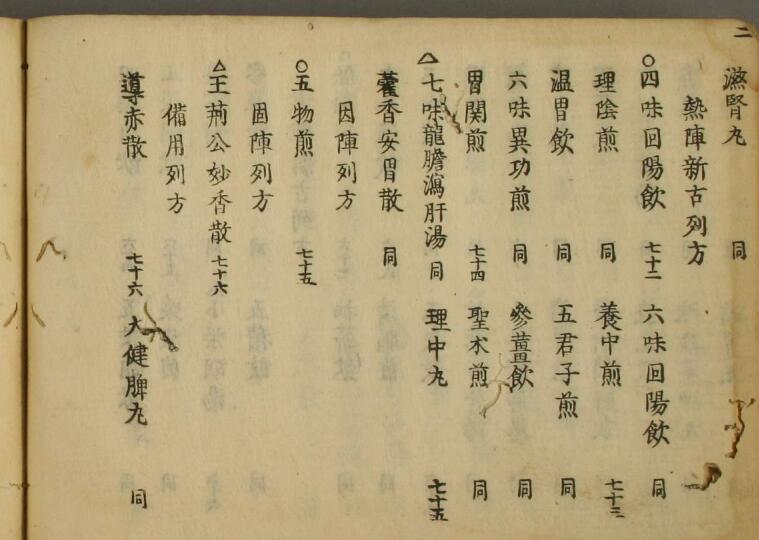 二
滋腎丸 同
熱陣新古列方
○四味回陽飲 七十二 六味回陽飲 同
理陰煎 同 養中煎 七十三
温胃飲 同 五君子煎 同
六味異功煎 同 參薑飲 同
胃関煎 七十四 聖朮煎 同
△七味龍膽瀉肝湯 同 理中丸 七十五
藿香安胃散 同
因陣列方
○五物煎 七十五
固陣列方
△王荊公妙香散 七十六
備用列方
導赤散 七十六 大健脾丸 同